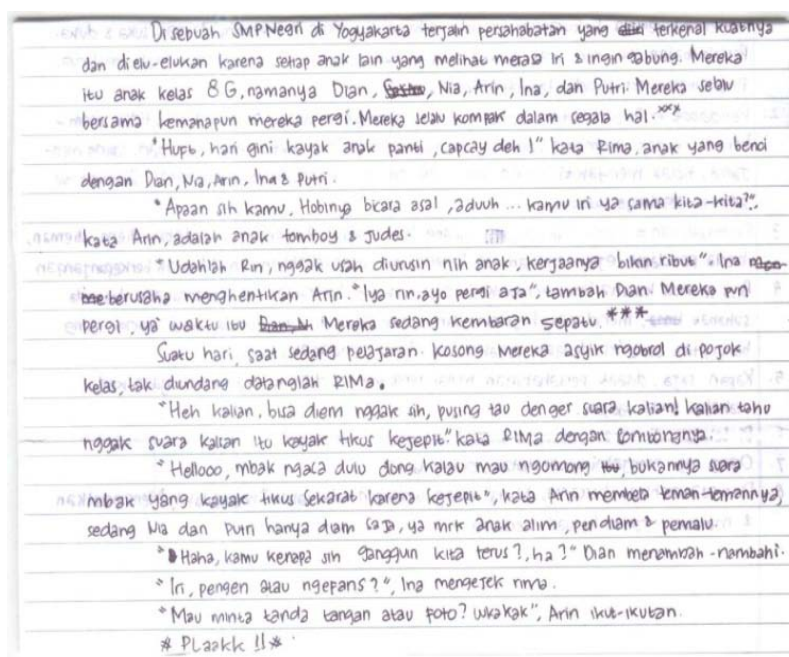 Disebuah SMP Negri di Yogyakarta terjalin persahabatan yang terkenal kuatnya
dan dielu-elukan karena setiap anak lain yang melihat merasa iri & ingin gabung. Mereka
itu anak kelas 8G, namanya Dian, Nia, Arin, Ina, dan Putri. Mereka selalu
bersama kemanapun mereka pergi. Mereka selalu kompak dalam segala hal. ***
"Hupt, hari gini kayak anak panti, capcay deh!" kata Rima, anak yang benci
dengan Dian, Nia, Arin, Ina & Putri.
"Apaan sih kamu, Hobinya bicara asal, aduuh ... kamu iri ya sama kita-kita?",
kata Arin, adalah anak tomboy & judes.
"Udahlah Rin, nggak usah diurusin nih anak, kerjaanya bikin ribut". Ina
berusaha menghentikan Arin. "Iya rin, ayo pergi aja", tambah Dian. Mereka pun
pergi, ya waktu itu Mereka sedang kembaran sepatu. ***
Suatu hari, saat sedang pelajaran kosong Mereka asyik ngobrol di pojok
kelas, tak diundang datanglah RIMa.
"Heh kalian, bisa diem nggak sih, pusing tao denger suara kalian! Kalian tahu
nggak suara kalian itu kayak tikus kejepit" kata RIMa dengan sombongnya.
"Hellooo, mbak ngaca dulu dong kalau mau ngomong, bukannya suara
mbak yang kayak tikus sekarat karena kejepit", kata Arin membela teman-temannya,
sedang Nia dan Putri hanya diam saja, ya mrk anak alim, pendiam & pemalu.
"Haha, kamu kenapa sih ganggun kita terus?, ha?" Dian menambah-nambahi.
"Iri, pengen atau ngefans?", Ina mengejek rima.
"Mau minta tanda tangan atau poto? wkakak", Arin ikut-ikutan.
* PLaakk !!*